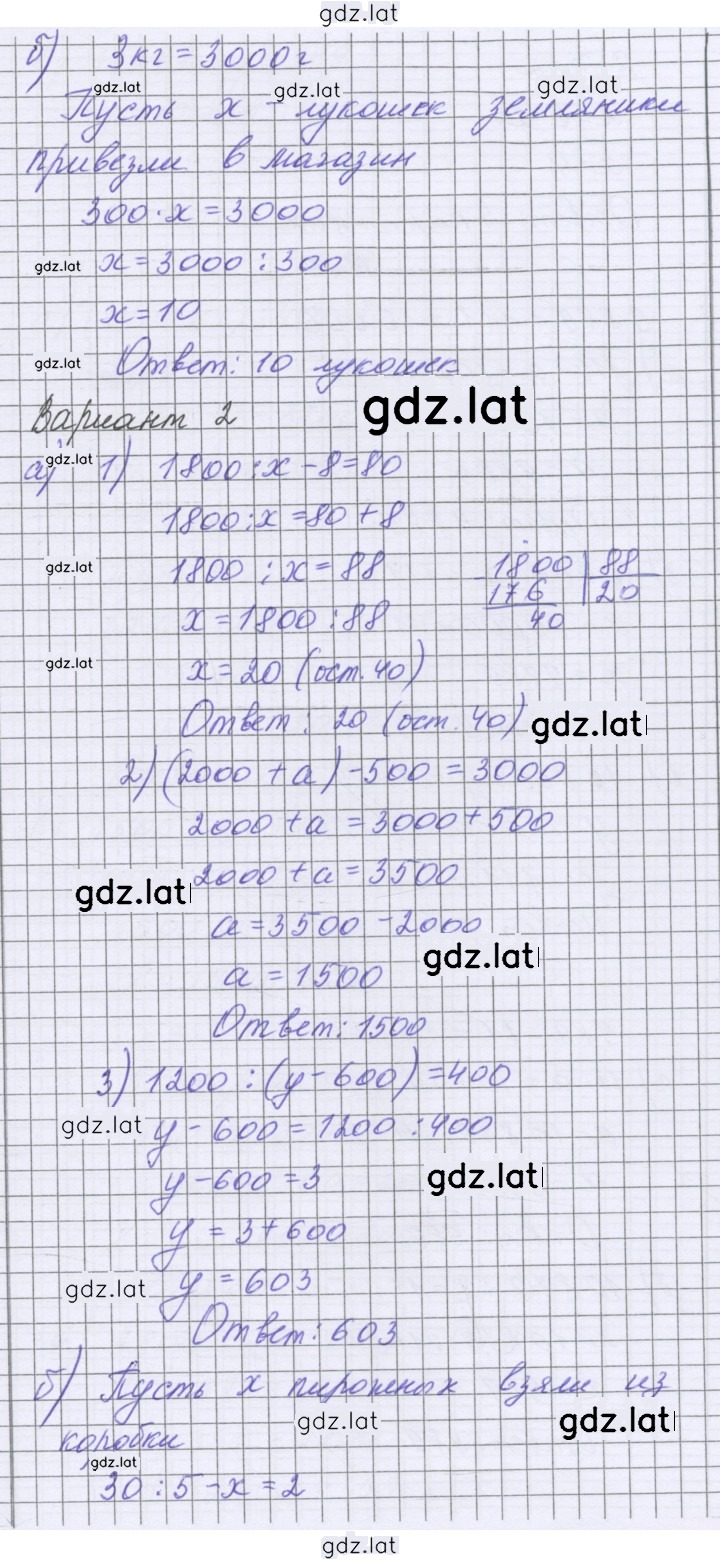 gdz.lat
б) 3 кг = 3000 г
gdz.lat gdz.lat gdz.lat
Пусть x - лукошек земляники
привезли в магазин
300 · x = 3000
gdz.lat x = 3000 : 300
x = 10
gdz.lat Ответ: 10 лукошек
Вариант 2 gdz.lat
а) gdz.lat 1) 1800 : x - 8 = 80
1800 : x = 80 + 8
gdz.lat 1800 : x = 88 1800 | 88
176 | 20
x = 1800 : 88 40
gdz.lat x = 20 (ост. 40)
Ответ: 20 (ост. 40) gdz.lat
2) (2000 + a) - 500 = 3000
2000 + a = 3000 + 500
gdz.lat 2000 + a = 3500
a = 3500 - 2000
gdz.lat
a = 1500
Ответ: 1500
3) 1200 : (y - 600) = 400
gdz.lat y - 600 = 1200 : 400
y - 600 = 3 gdz.lat
y = 3 + 600
gdz.lat y = 603
Ответ: 603
б) Пусть x пирожных взяли из
gdz.lat gdz.lat
коробки
gdz.lat
30 : 5 - x = 2
gdz.lat